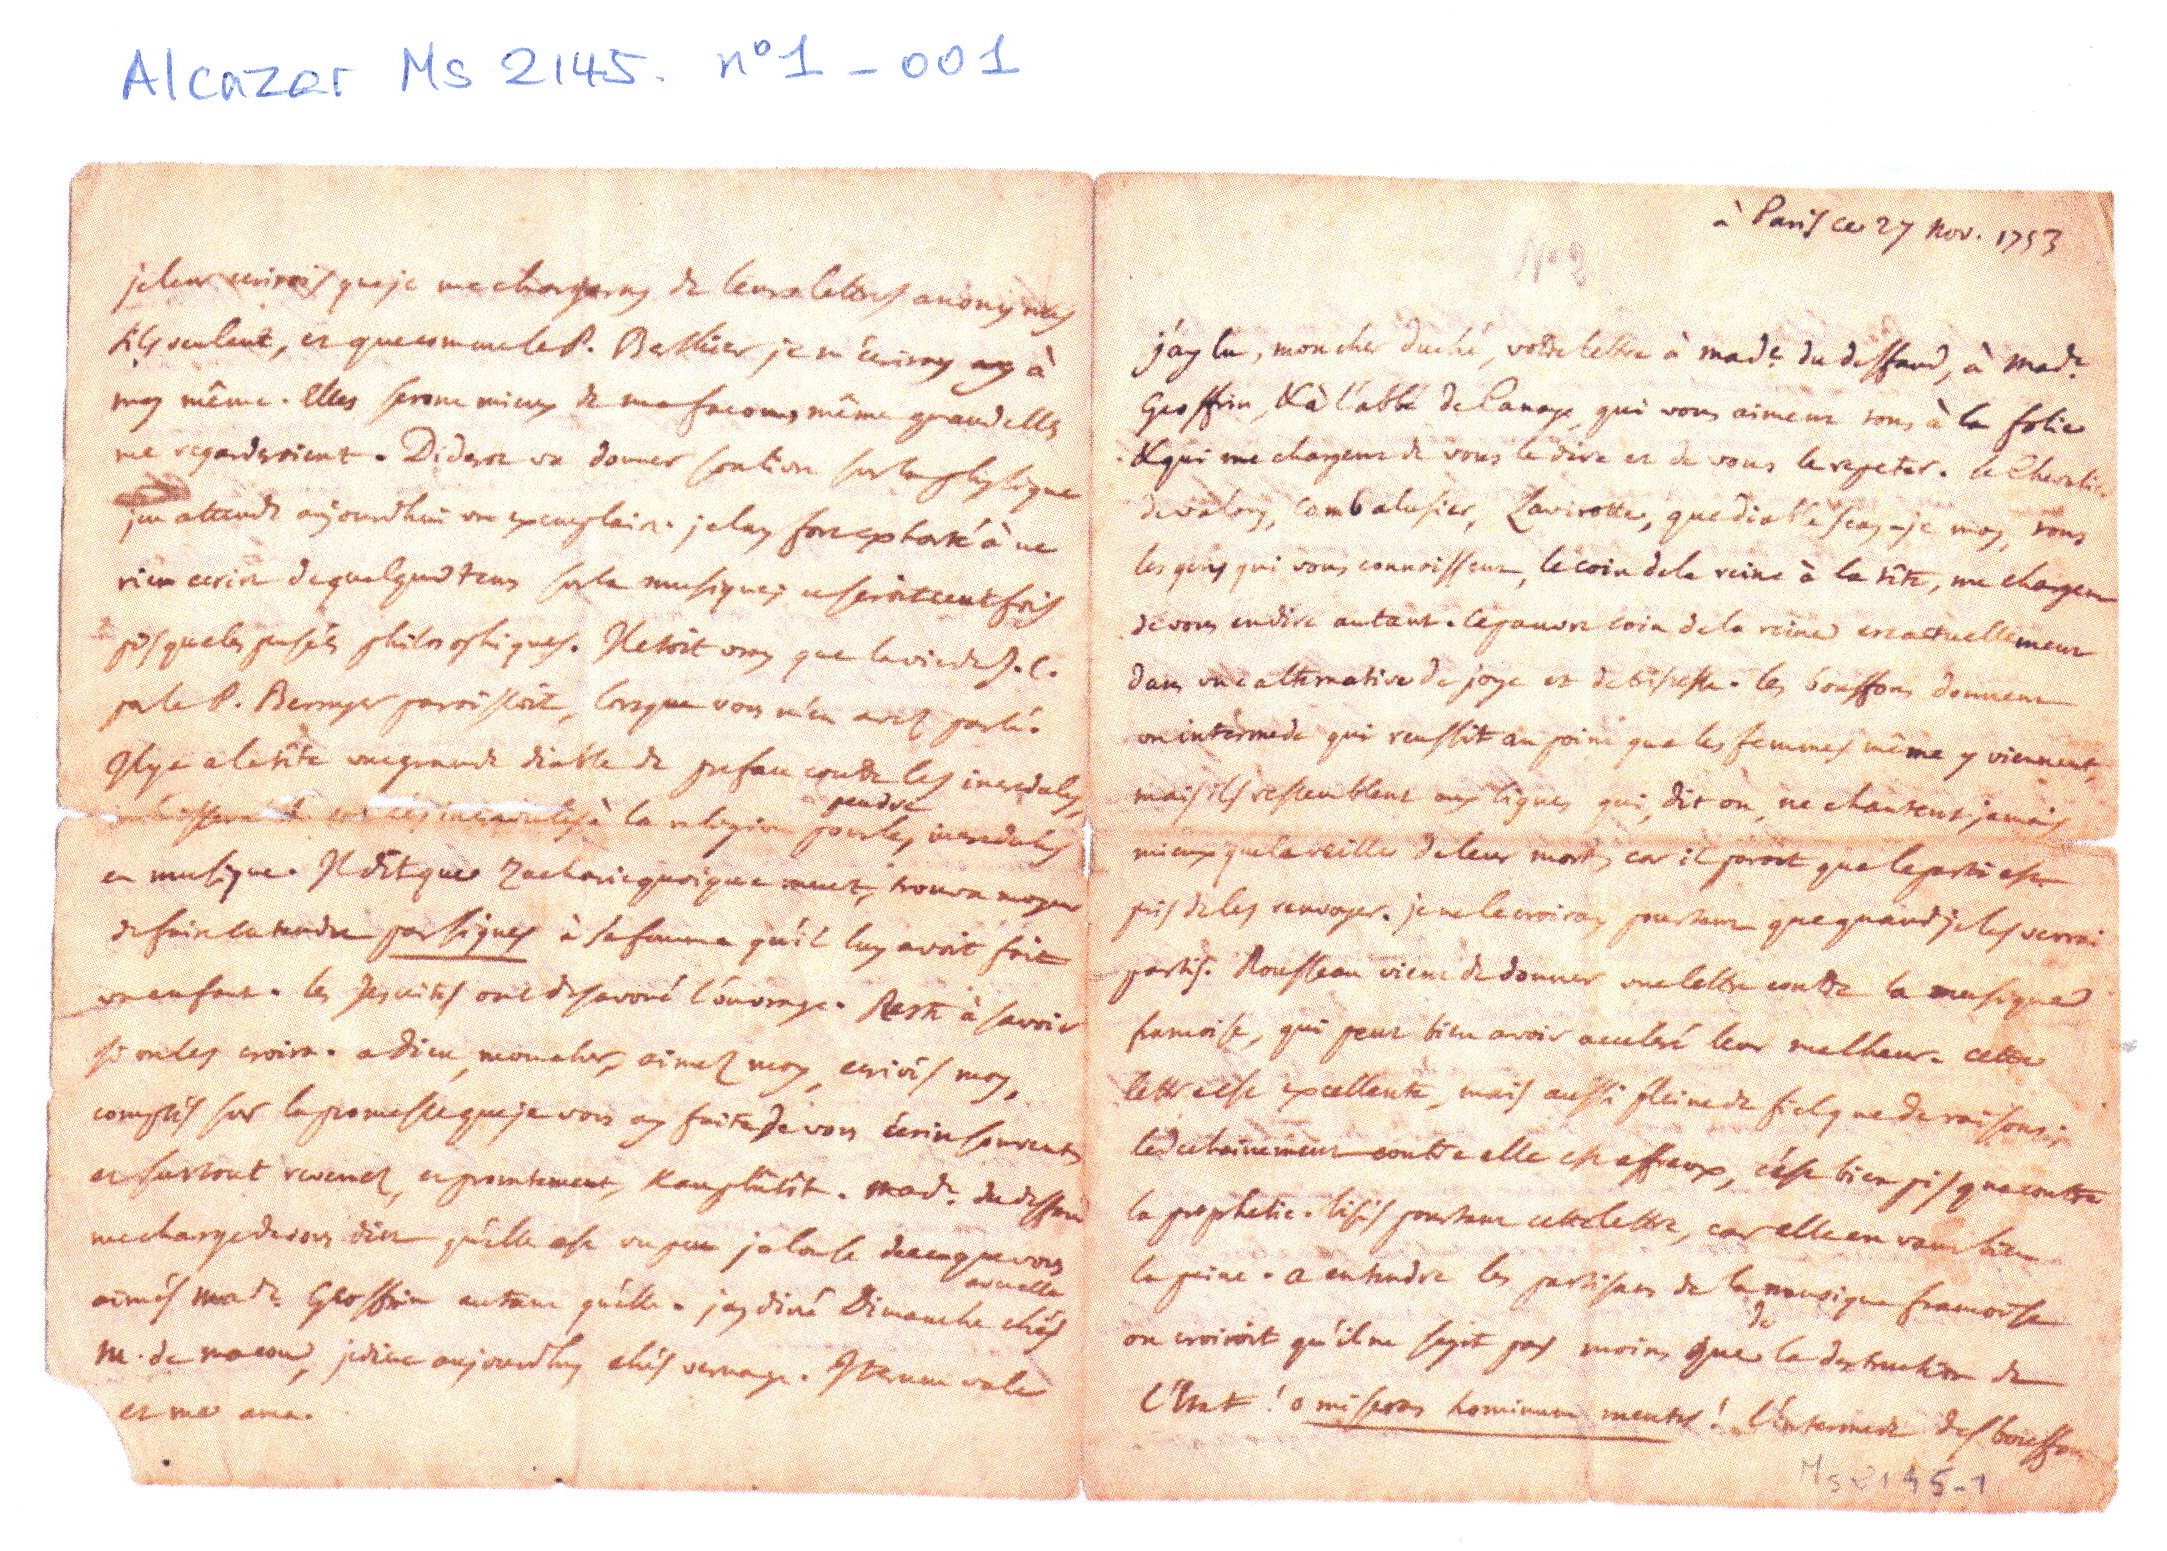 Alcazar Ms 2145. n°1 - 001
à Paris ce 27 nov. 1753
j'ay lu, mon cher Duché, votre lettre à made. du deffand, à made.
Geoffrin, & à l'abbé de Canaye, qui vous aiment tous à la folie
& qui me chargent de vous le dire et de vous le repeter. le Chevalier
de valory, Combalusier, Lavirotte, que diable scay-je moy, tous
les gens qui vous connoissent, le coin de la reine à la tête, me chargent
de vous en dire autant. le pauvre coin de la reine est actuellement
dans une alternative de joye et de tristesse. les bouffons donnent
un intermede qui reussit au point que les femmes même y viennent,
mais ils ressemblent aux cignes qui, dit on, ne chantent jamais
mieux que la veille de leur mort; car il paroit que le parti est
pris de les renvoyer. je ne le croiray pourtant que quand je les verrai
partis. Rousseau vient de donner une lettre contre la musique
francoise, qui peut bien avoir acceleré leur malheur. cette
lettre est excellente, mais aussi pleine de fiel que de raisons;
le dechainement contre elle est affreux, c'est bien pis que contre
la prophetie. lisés pourtant cette lettre, car elle en vaut bien
la peine. a entendre les partisans de la musique francoise
on croiroit qu'il ne s'agit pas moins que de la destruction de
l'Etat! o miseras hominum mentes! L'intermede des bouffons
Ms 2145-1
je leur ecrirois que je me chargeray de leurs lettres anonymes
s'ils veulent, et que comme le P. Berthier je m'ecriray à
moy même. Elles seront mieux de ma facon, même quand elles
me regarderoient. Diderot va donner son livre sur la physique
j'en attends aujourdhui un exemplaire. je l'ay fort exhorté à ne
rien ecrire de quelque tems sur la musique; ce seroit cent fois
pis que les pensées philosophiques. Il etoit vray que la vie de J. C.
par le P. Berruyer paroissoit, lorsque vous m'en avez parlé.
Il y a à la tête une grande diable de preface contre les incredules,
ces incredules à la religion pendre pour les incredules
en musique. Il dit que Zacharie quoique muet, trouva moyen
de faire entendre par signes à sa femme qu'il luy avoit fait
un enfant. les Jesuites ont desavoué l'ouvrage. Reste à savoir
si on les croira. adieu, mon cher, aimez moy, ecrivés moy,
comptés sur la promesse que je vous ay faite de vous écrire souvent,
et surtout revenez, et promtement, & au plutôt. made. du deffand
me charge de vous dire qu'elle est un peu jalouse de ce que vous
aimés made. Geoffrin autant qu'elle. j'ay diné Dimanche avec elle chés
M. de macon, je dine aujourdhuy chés vernage. Iterum vale
et me ama.